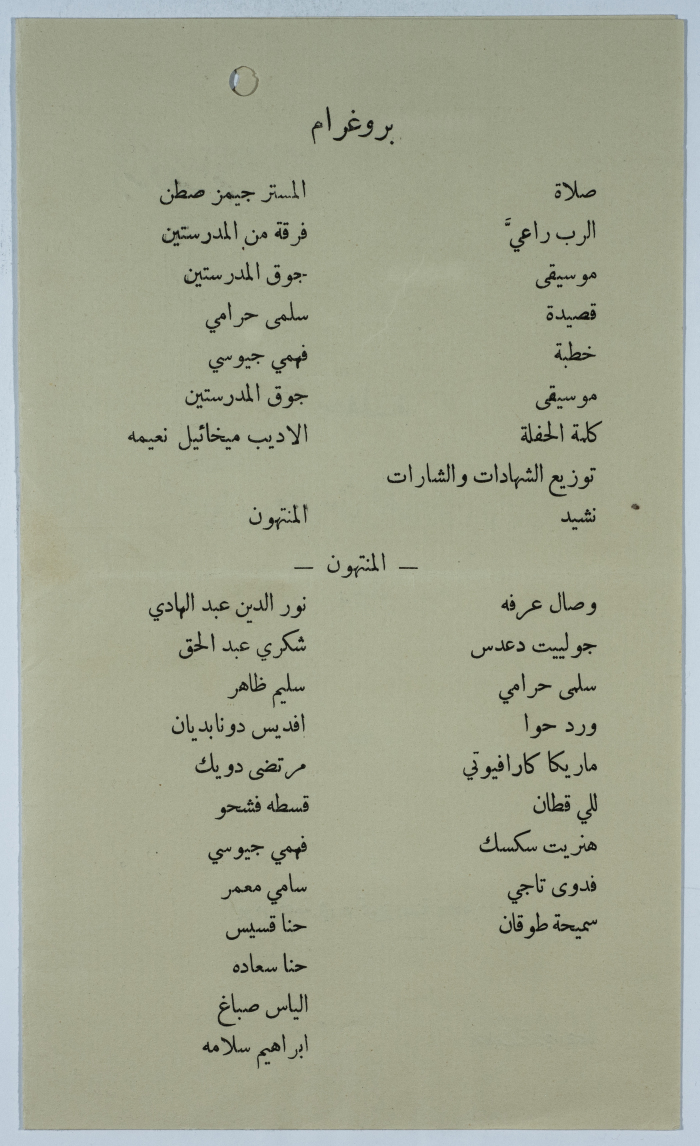 بروغرام
صلاة المستر جيمز صطن
الرب راعيَّ فرقة من المدرستين
موسيقى جوق المدرستين
قصيدة سلمى حرامي
خطبة فهمي جيوسي
موسيقى جوق المدرستين
كلمة الحفلة الاديب ميخائيل نعيمه
توزيع الشهادات والشارات
نشيد المنتهون
— المنتهون —
وصال عرفه نور الدين عبد الهادي
جولييت دعدس شكري عبد الحق
سلمى حرامي سليم ظاهر
ورد حوا افديس دونابديان
ماريكا كارافيوتي مرتضى دويك
للي قطان قسطه فشحو
هنريت سكسك فهمي جيوسي
فدوى تاجي سامي معمر
سميحة طوقان حنا قسيس
حنا سعاده
الياس صباغ
ابراهيم سلامه